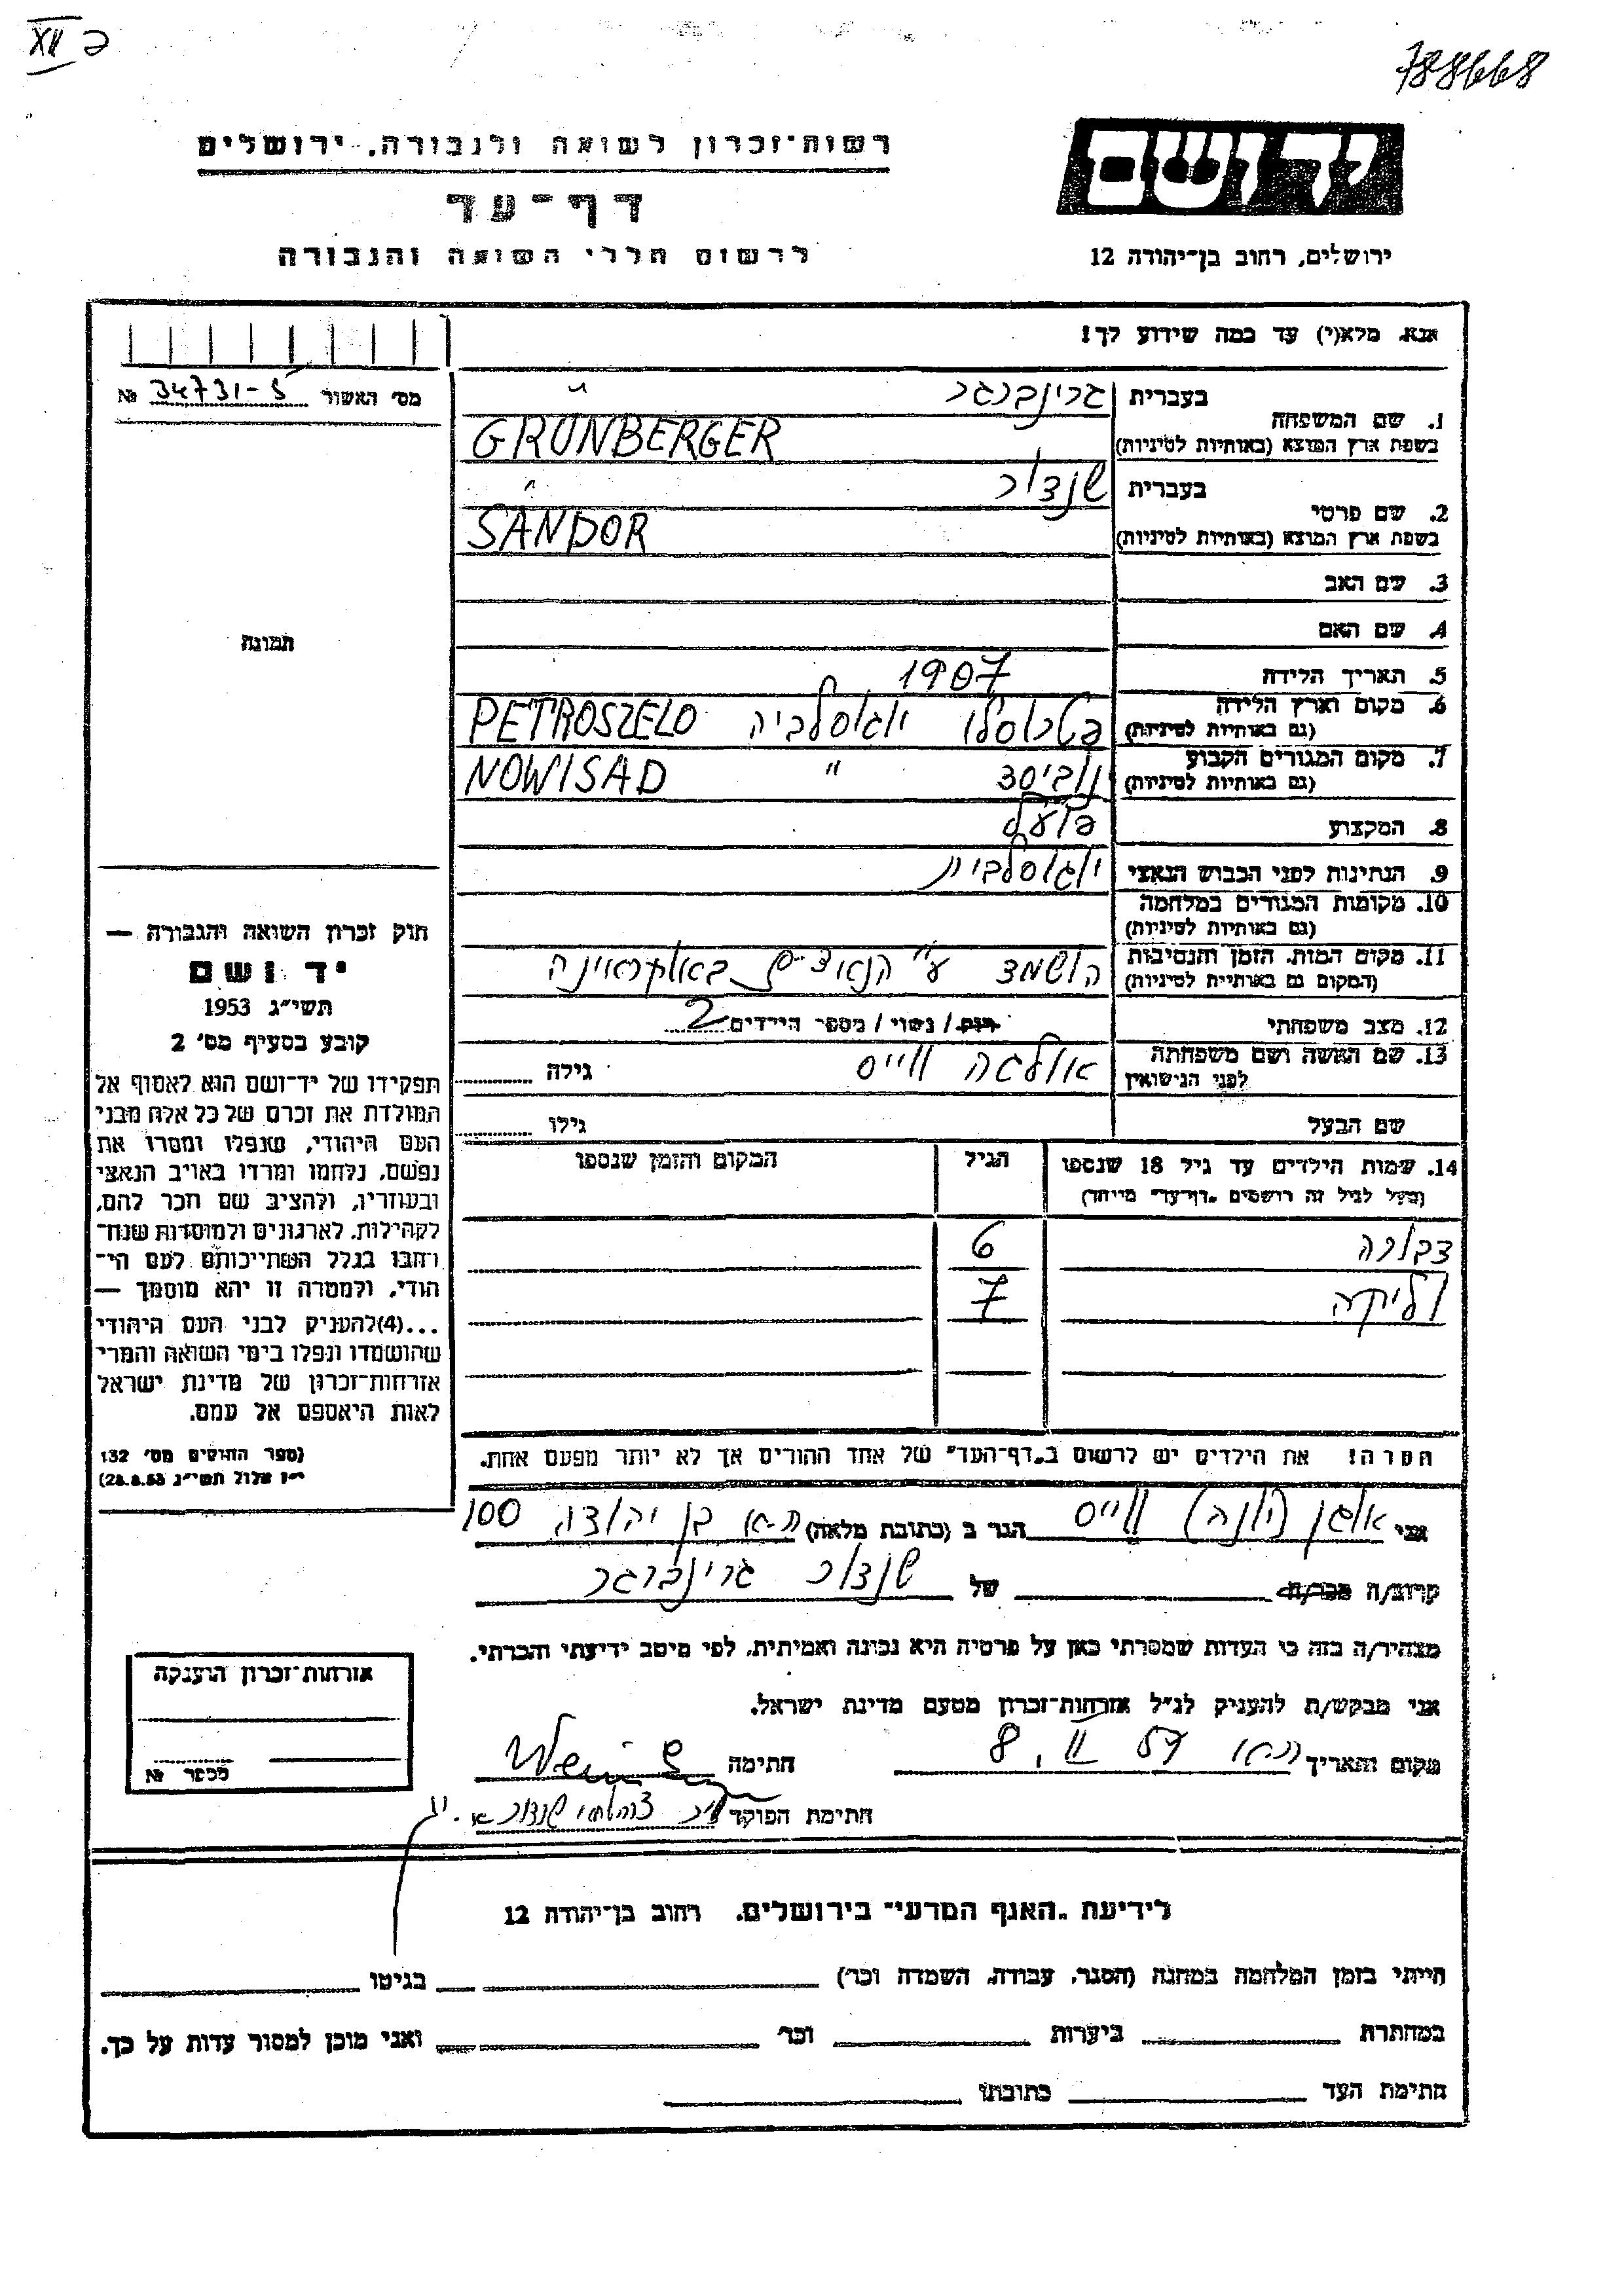 XII כ
788668
רשות־זכרון לשואה ולגבורה, ירושלים
דף־עד
לרשום חללי השואה והגבורה
יד ושם
ירושלים, רחוב בן־יהודה 12
אנא, מלא(י) עד כמה שידוע לך!
מס׳ האשור 34731-5 №
תמונה
1. שם המשפחה בעברית גרינברגר
בשפת ארץ המוצא (באותיות לטיניות) GRÜNBERGER
2. שם פרטי בעברית שנדור
בשפת ארץ המוצא (באותיות לטיניות) SÁNDOR
3. שם האב
4. שם האם
5. תאריך הלידה 1907
6. מקום וארץ הלידה (גם באותיות לטיניות) פטרוסלו יוגוסלביה PETROSZELO
7. מקום המגורים הקבוע (גם באותיות לטיניות) נוביסד " NOWISAD
8. המקצוע פועל
9. הנתינות לפני הכבוש הנאצי יוגוסלבית
10. מקומות המגורים במלחמה (גם באותיות לטיניות)
11. מקום המות, הזמן והנסיבות (המקום גם באותיות לטיניות) הושמד ע"י הנאצים באוקראינה
12. מצב משפחתי רווק / נשוי / מספר הילדים 2
13. שם האשה ושם משפחתה לפני הנישואין אולגה ווייס גילה
שם הבעל גילו
14. שמות הילדים עד גיל 18 שנספו (מעל לגיל זה רושמים „דף־עד״ מיוחד) הגיל המקום והזמן שנספו
דבורה 6
7
הערה! את הילדים יש לרשום ב„דף־העד״ של אחד ההורים אך לא יותר מפעם אחת.
חוק זכרון השואה והגבורה —
יד ושם
תשי״ג 1953
קובע בסעיף מס׳ 2
תפקידו של יד־ושם הוא לאסוף אל
המולדת את זכרם של כל אלה מבני
העם היהודי, שנפלו ומסרו את
נפשם, נלחמו ומרדו באויב הנאצי
ובעוזריו, ולהציב שם וזכר להם,
לקהילות, לארגונים ולמוסדות שנח־
רבו בגלל השתייכותם לעם הי־
הודי, ולמטרה זו יהא מוסמך —
...(4)להעניק לבני העם היהודי
שהושמדו ונפלו בימי השואה והמרי
אזרחות־זכרון של מדינת ישראל
לאות היאספם אל עמם.
(ספר החוקים מס׳ 132
י״ז אלול תשי״ג 28.8.53)
אני ווייס הגר ב (כתובת מלאה) ת-א בן יהודה 100
קרוב/ה מכר/ה של שנדור גרינברגר
מצהיר/ה בזה כי העדות שמסרתי כאן על פרטיה היא נכונה ואמיתית, לפי מיטב ידיעתי והכרתי.
אני מבקש/ת להעניק לנ״ל אזרחות־זכרון מטעם מדינת ישראל.
מקום ותאריך ת-א 8. II 57 חתימה
חתימת הפוקד
אזרחות־זכרון הוענקה
מספר №
לידיעת „האגף המדעי״ בירושלים, רחוב בן־יהודה 12
הייתי בזמן המלחמה במחנה (הסגר, עבודה, השמדה וכו׳) בגיטו
במחתרת ביערות וכו׳ ואני מוכן למסור עדות על כך.
חתימת העד כתובתו